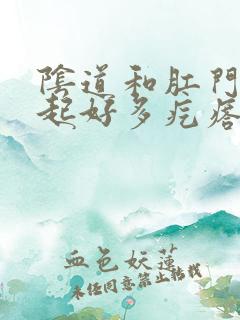 陰道和肛門
起好多疙瘩
血色妖蓮
未经同意禁止转载